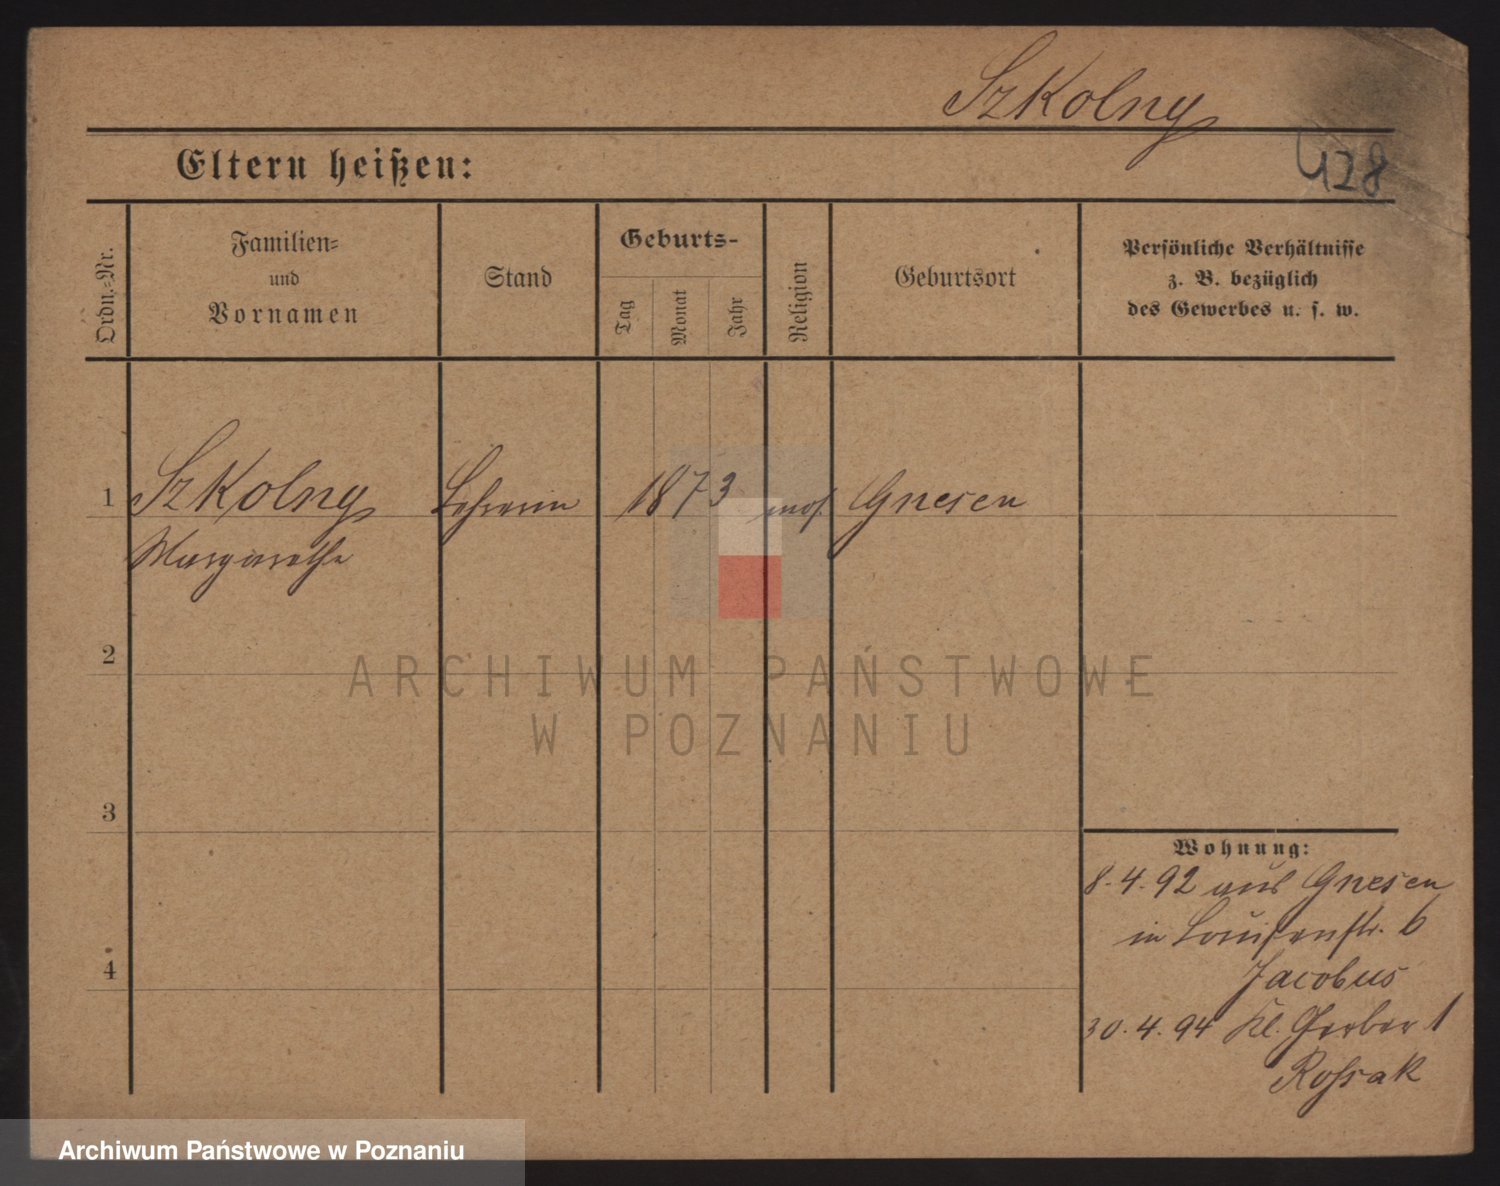 Szkolny
428
Eltern heißen:
Ordn.-Nr.
Familien-
und
Vornamen
Stand
Geburts-
Tag
Monat
Jahr
Religion
Geburtsort
Persönliche Verhältnisse
z. B. bezüglich
des Gewerbes u. s. w.
1 Szkolny Lehrerin 1873 mos. Gnesen
Margarethe
2
ARCHIWUM PAŃSTWOWE
W POZNANIU
3
Wohnung:
8.4.92 aus Gnesen
in Louisenstr. 6
Jacobus
4
30.4.94 Kl. Gerber 1
Rossak
Archiwum Państwowe w Poznaniu